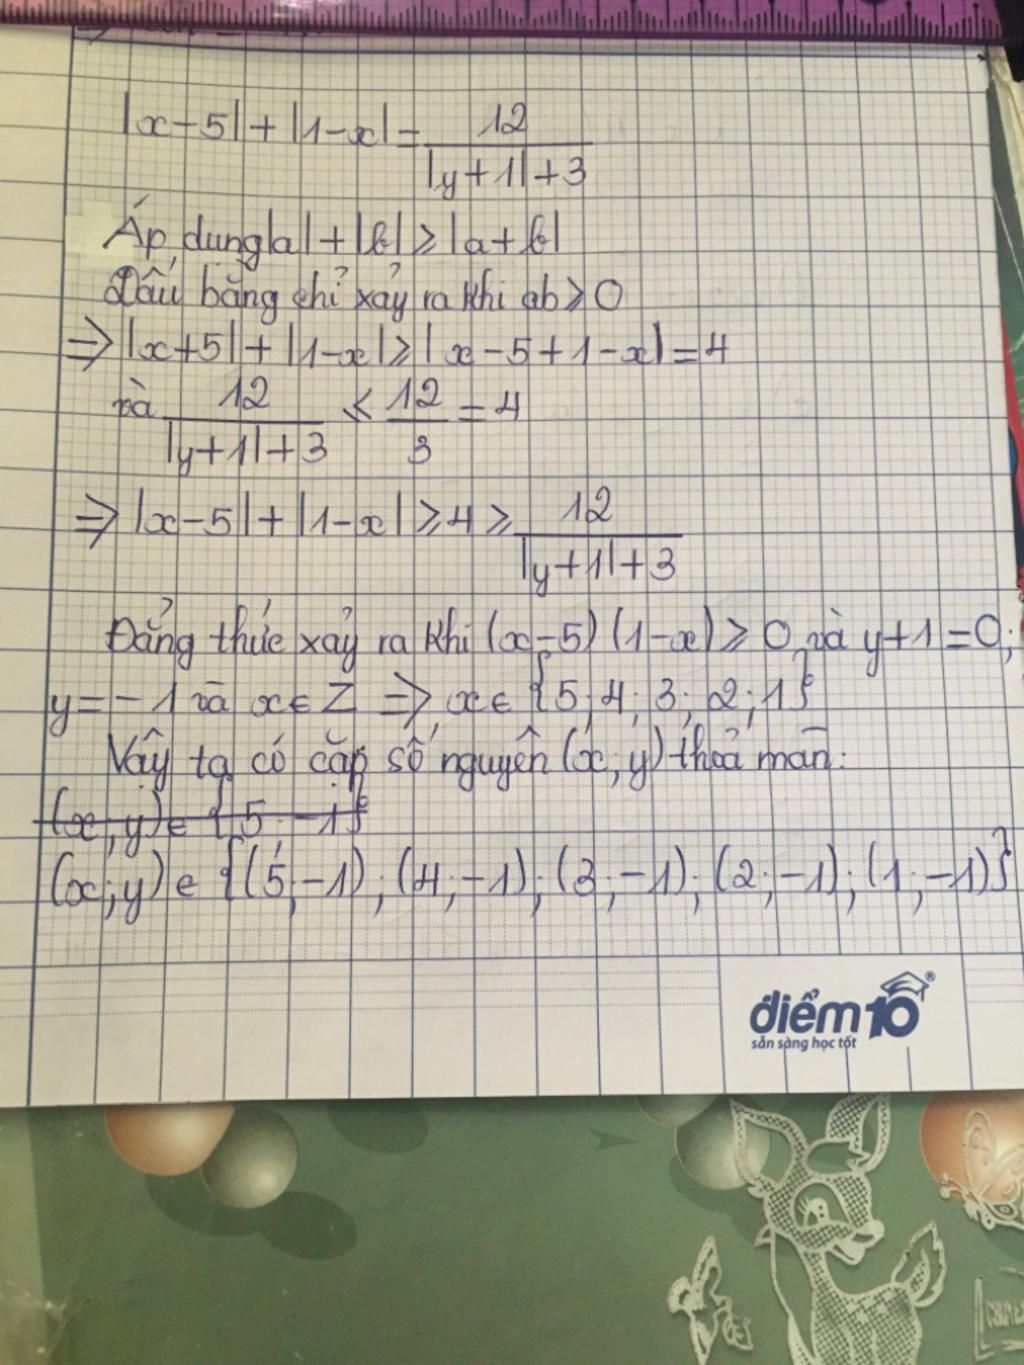 |x-5|+|1-x|=12/(|y+1|+3)
Áp dụng|a|+|b|≥|a+b|
Dấu bằng chỉ xảy ra khi ab≥0
⇒|x+5|+|1-x|≥|x-5+1-x|=4
và 12/(|y+1|+3) ≤ 12/3 = 4
⇒|x-5|+|1-x|≥4≥12/(|y+1|+3)
Đẳng thức xảy ra khi (x-5)(1-x)≥0 và y+1=0;
y=-1 và x∈Z ⇒ x∈{5;4;3;2;1}
Vậy ta có cặp số nguyên (x;y) thoả mãn:
(x;y)∈{5;-1}
(x;y)∈{(5;-1);(4;-1);(3;-1);(2;-1);(1;-1)}
điểm10®
sẵn sàng học tốt